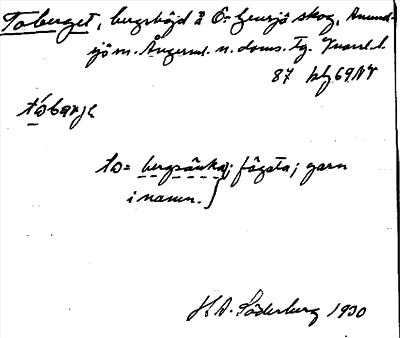 Toberget, bergshöjd å Ö-Gensjö skog, Anund-
sjö m. Ångerml. n. doms. Tg.
87 bl 69 NV
tóbarje
to = bergsänka; fägata; garn
i namn.
H. A. Söderberg 1930